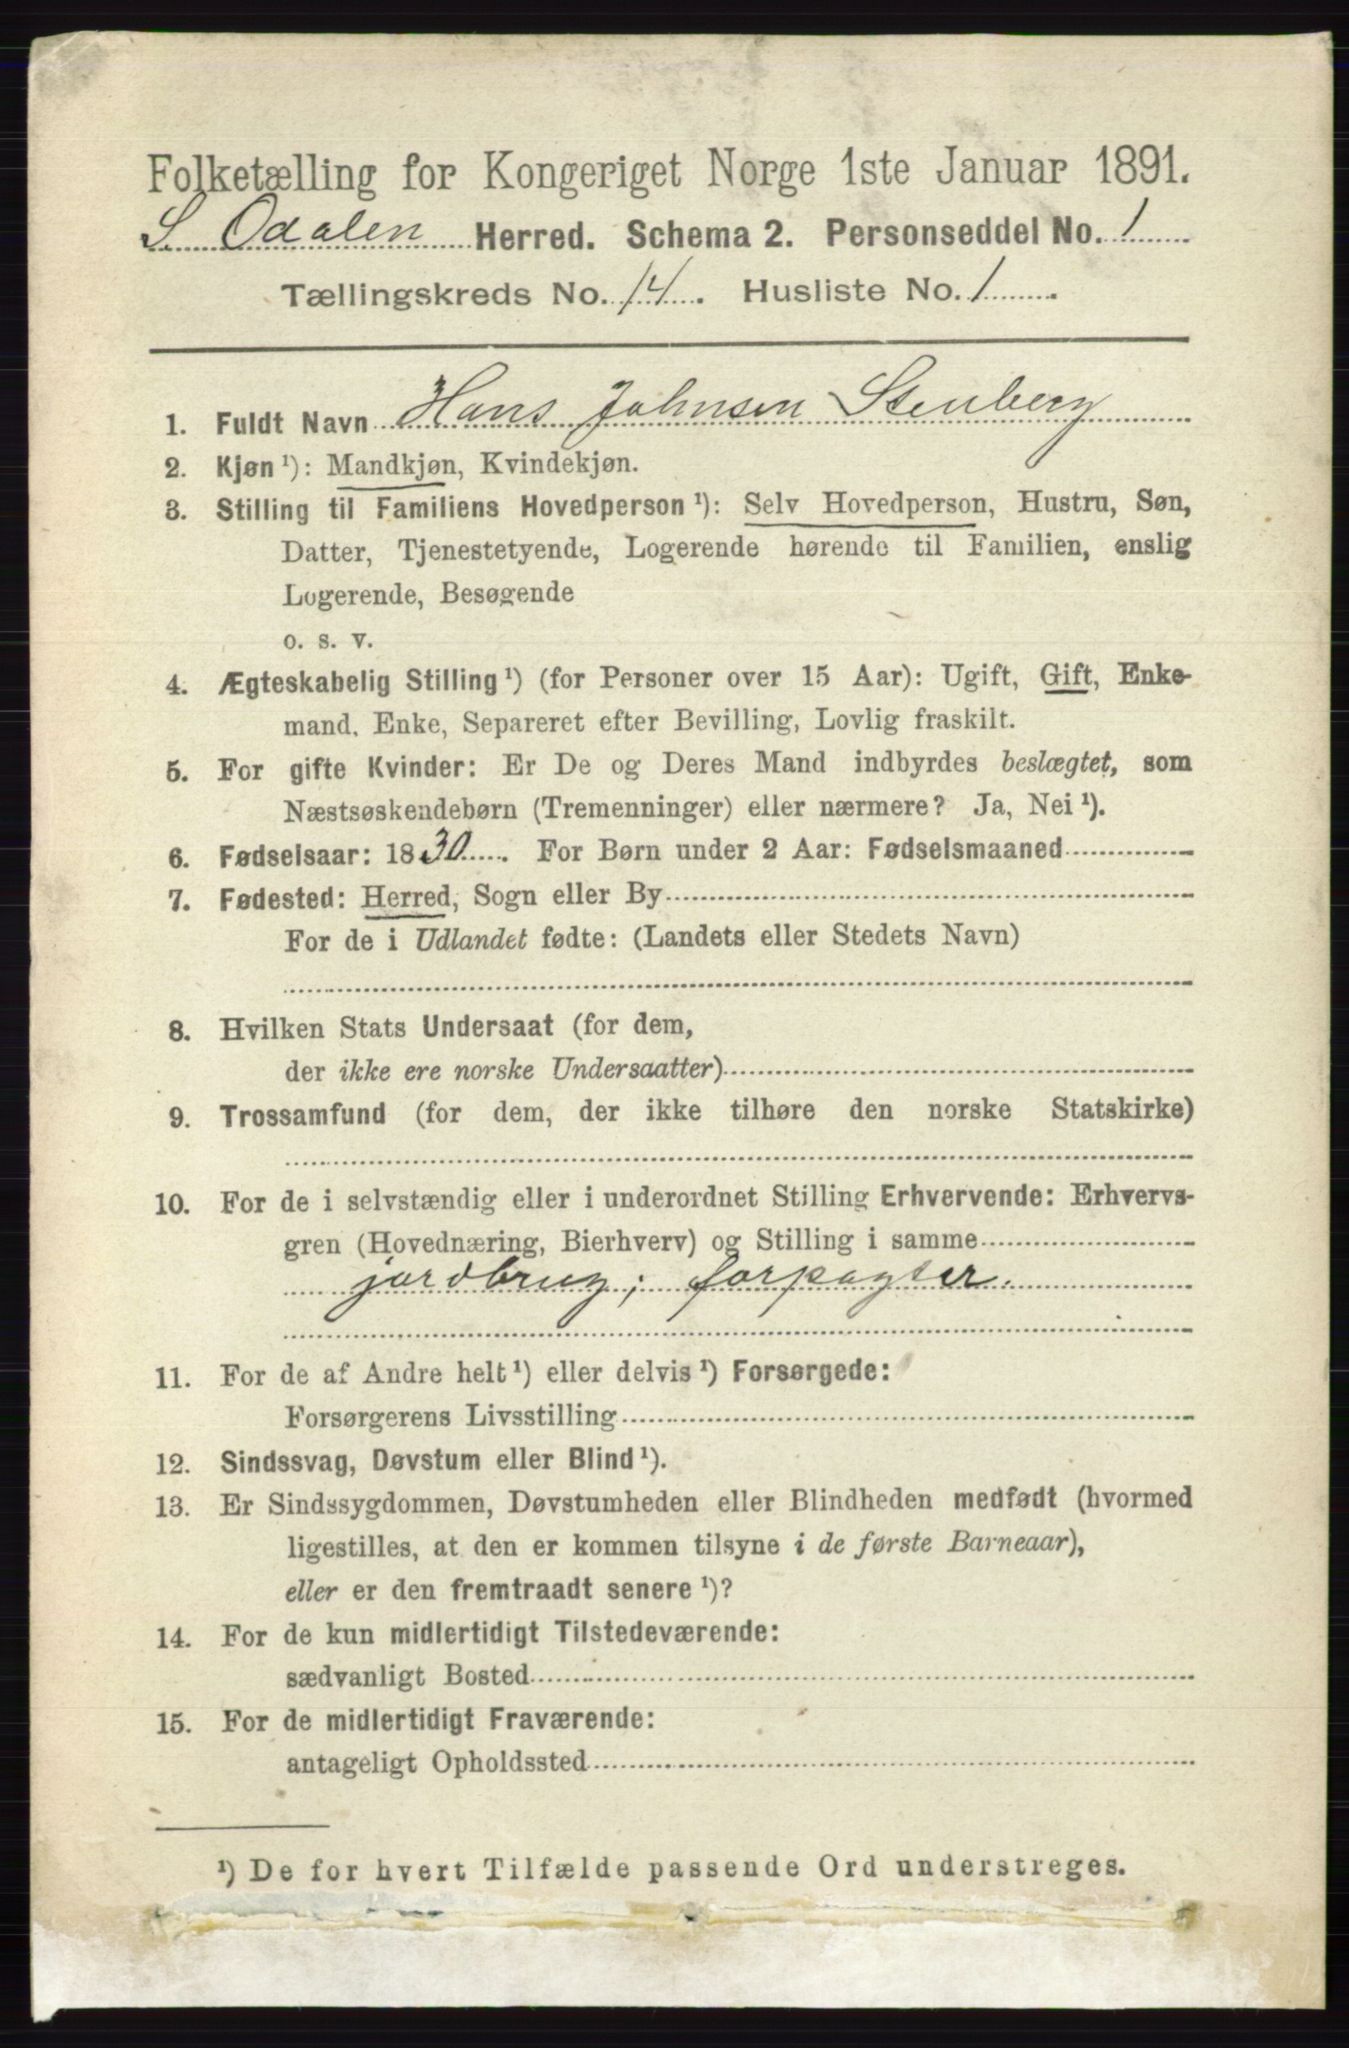 Folketælling for Kongeriget Norge 1ste Januar 1891.
S. Odalen Herred. Schema 2. Personseddel No. 1
Tællingskreds No. 14. Husliste No. 1.
1. Fuldt Navn Hans Johnsen Stenberg
2. Kjøn ¹): Mandkjøn, Kvindekjøn.
3. Stilling til Familiens Hovedperson ¹): Selv Hovedperson, Hustru, Søn,
Datter, Tjenestetyende, Logerende hørende til Familien, enslig
Logerende, Besøgende
o. s. v.
4. Ægteskabelig Stilling ¹) (for Personer over 15 Aar): Ugift, Gift, Enke-
mand, Enke, Separeret efter Bevilling, Lovlig fraskilt.
5. For gifte Kvinder: Er De og Deres Mand indbyrdes beslægtet, som
Næstsøskendebørn (Tremenninger) eller nærmere? Ja, Nei ¹).
6. Fødselsaar: 1830. For Børn under 2 Aar: Fødselsmaaned
7. Fødested: Herred, Sogn eller By
For de i Udlandet fødte: (Landets eller Stedets Navn)
8. Hvilken Stats Undersaat (for dem,
der ikke ere norske Undersaatter)
9. Trossamfund (for dem, der ikke tilhøre den norske Statskirke)
10. For de i selvstændig eller i underordnet Stilling Erhvervende: Erhvervs-
gren (Hovednæring, Bierhverv) og Stilling i samme
jordbrug; forpagter.
11. For de af Andre helt ¹) eller delvis ¹) Forsørgede:
Forsørgerens Livsstilling
12. Sindssvag, Døvstum eller Blind ¹).
13. Er Sindssygdommen, Døvstumheden eller Blindheden medfødt (hvormed
ligestilles, at den er kommen tilsyne i de første Barneaar),
eller er den fremtraadt senere ¹)?
14. For de kun midlertidigt Tilstedeværende:
sædvanligt Bosted
15. For de midlertidigt Fraværende:
antageligt Opholdssted
¹) De for hvert Tilfælde passende Ord understreges.